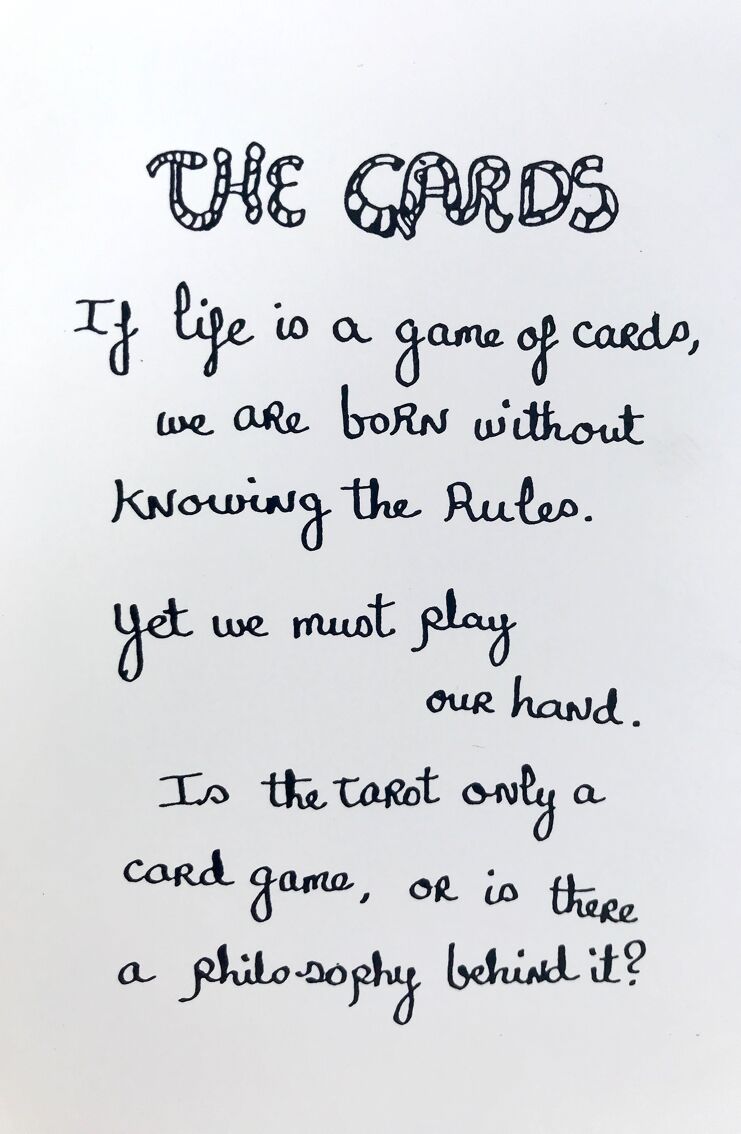 THE CARDS
If life is a game of cards,
we are born without
knowing the Rules.
Yet we must play
our hand.
Is the tarot only a
card game, or is there
a philo-sophy behind it?